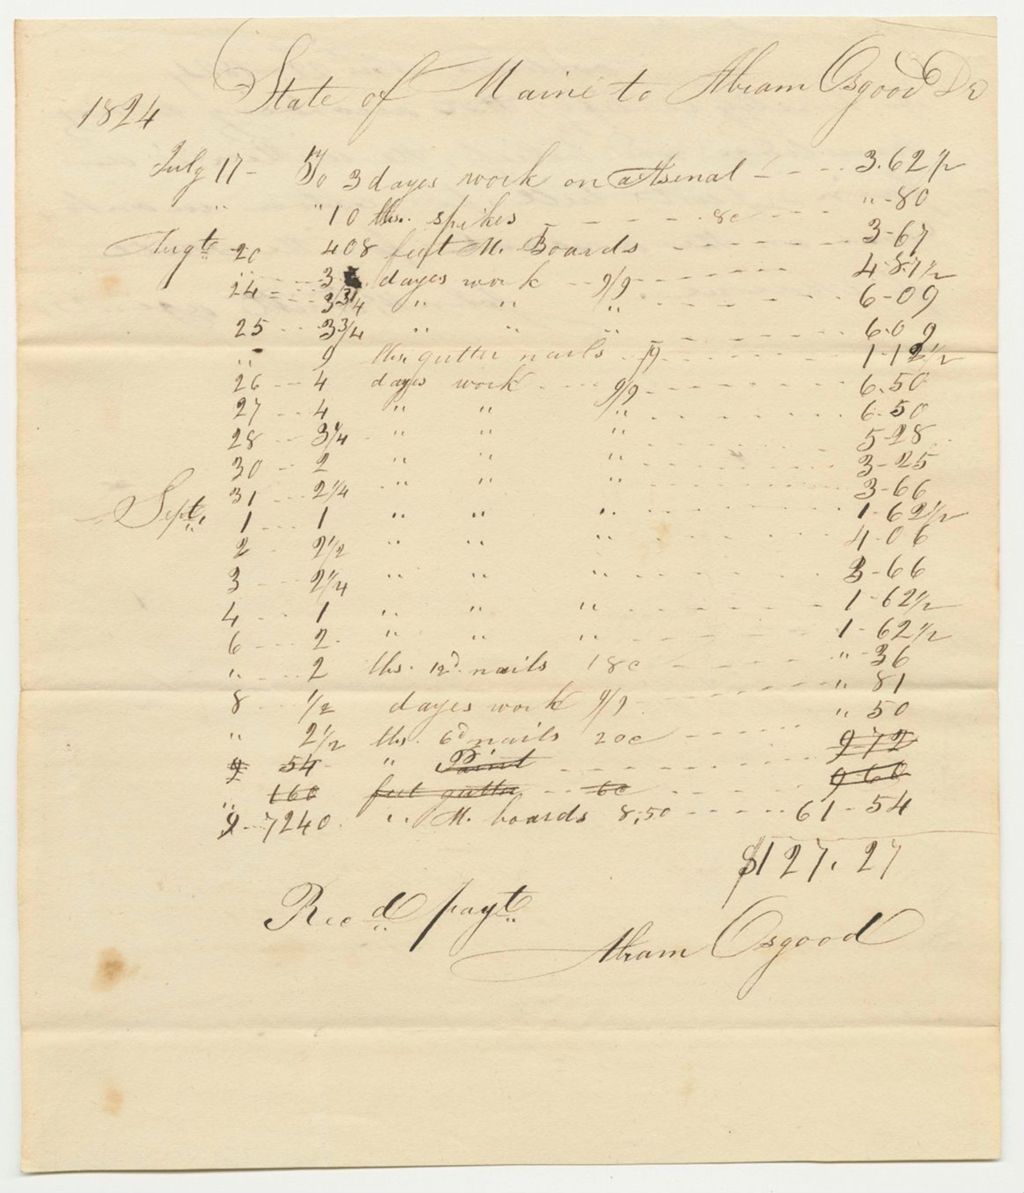 State of Maine to Abram Osgood Dr
1824
July 17 - To 3 dayes work on Arsenal - - - 3.62 1/2
" " 10 lbs. spikes - - - - 8c - - - " - 80
Augt. 20 408 feet M. Boards - - - - - - 3-67
24 - - 3 dayes work - - 9/9 - - - - - 4-87 1/2
" 3 3/4 " " " - - - - - 6-09
25 - - 3 3/4 " " " - - - - - 6.09
" - 9 lbs. gutter nails - - - - - 1-12 1/2
26 - - 4 dayes work - - - 9/9 - - - - - 6.50
27 - - 4 " " " - - - - - 6.50
28 - - 3 1/4 " " " - - - - - 5-28
30 - - 2 " " " - - - - - 3-25
31 - - 2 1/4 " " " - - - - - 3-66
Sept. 1 - - 1 " " " - - - - - 1-62 1/2
2 - - 2 1/2 " " " - - - - - 4-06
3 - - 2 1/4 " " " - - - - - 3-66
4 - - 1 " " " - - - - - 1-62 1/2
6 - - 2 " " " - - - - - 1-62 1/2
" - - 2 lbs. 12d. nails 18c - - - - - " - 36
8 - - 1/2 dayes work 9/9 - - - - - " 81
" 2 1/2 lbs. 6d nails 20c - - - - - " 50
9 54 " Paint - - - - - 972
" 160 feet gutter - - 6c - - - - - 960
9 - 7240 " M. boards 8,50 - - - - - 61-54
$127.27
Recd payt.
Abram Osgood